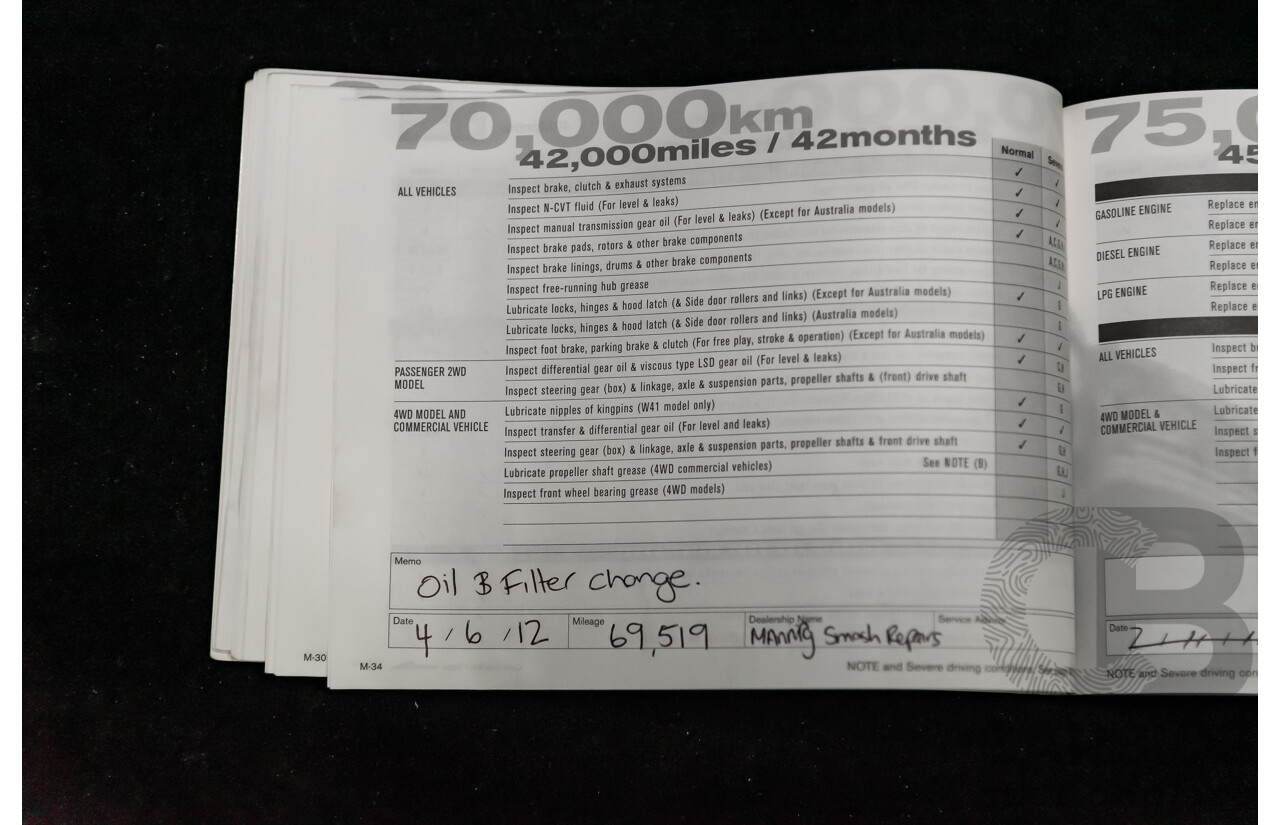 70,000km
42,000miles / 42months
Normal
ALL VEHICLES
Inspect brake, clutch & exhaust systems ✓ ✓
Inspect N-CVT fluid (For level & leaks) ✓ ✓
Inspect manual transmission gear oil (For level & leaks) (Except for Australia models) ✓ ✓
Inspect brake pads, rotors & other brake components ✓
Inspect brake linings, drums & other brake components
Inspect free-running hub grease
Lubricate locks, hinges & hood latch (& Side door rollers and links) (Except for Australia models) ✓ G
Lubricate locks, hinges & hood latch (& Side door rollers and links) (Australia models) G
Inspect foot brake, parking brake & clutch (For free play, stroke & operation) (Except for Australia models) ✓ ✓
PASSENGER 2WD
MODEL
Inspect differential gear oil & viscous type LSD gear oil (For level & leaks) ✓
Inspect steering gear (box) & linkage, axle & suspension parts, propeller shafts & (front) drive shaft
4WD MODEL AND
COMMERCIAL VEHICLE
Lubricate nipples of kingpins (W41 model only) ✓ G
Inspect transfer & differential gear oil (For level and leaks) ✓ ✓
Inspect steering gear (box) & linkage, axle & suspension parts, propeller shafts & front drive shaft ✓
Lubricate propeller shaft grease (4WD commercial vehicles) See NOTE (B)
Inspect front wheel bearing grease (4WD models)
Memo
Oil & Filter change.
Date 4 / 6 / 12 Mileage 69,519 Dealership Name Smash Repairs Service
M-30
M-34
NOTE and Severe driving
75,0
45
GASOLINE ENGINE
Replace
Replace
DIESEL ENGINE
Replace
Replace
LPG ENGINE
Replace
Replace
ALL VEHICLES
Inspect
Inspect
Lubricate
4WD MODEL &
COMMERCIAL VEHICLE
Lubricate
Inspect
Inspect
Date
NOTE and Severe driving